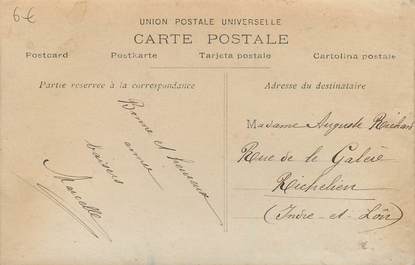 6€
UNION POSTALE UNIVERSELLE
CARTE POSTALE
Postcard Postkarte Tarjeta postale Cartolina postale
Partie reservee à la correspondance
Bonne et heureuse
année
baisers
Marcelle
Adresse du destinataire
Madame Auguste Richard
Rue de le Galère
Richelieu
(Indre-et-Loir)